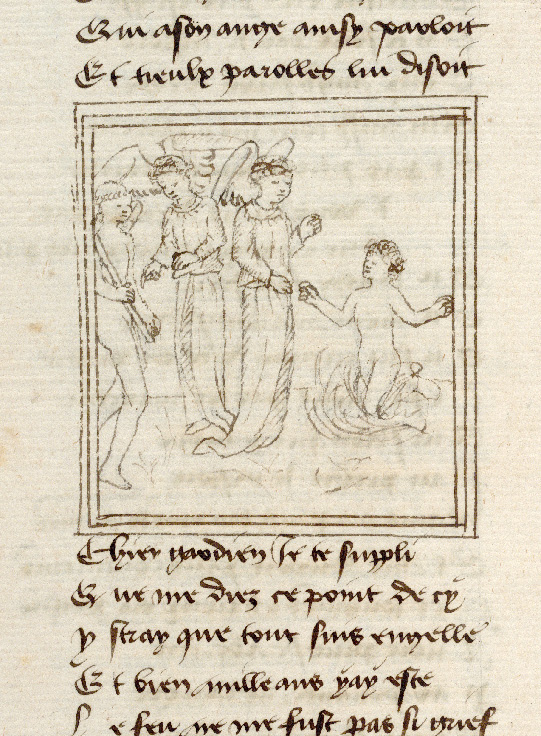 Qui a son ange ainsy parloit
Et tieulx parolles lui disoit
Chier gardien Je te suppli
Que me diez ce point de cy
Y stray que tout suis engelle
Et bien mille ans y ay este
Le feu ne me fust pas si grief